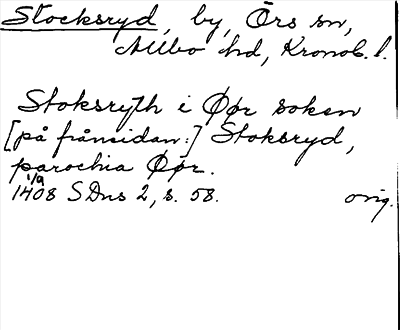 Stocksryd, by, Örs sn,
Allbo hd, Kronob. l.
Stoksryth i Ø̂r soken
[på frånsidan:] Stoksryd,
parochia Ø̂r.
1/9
1408 SDns 2, s. 58. orig.